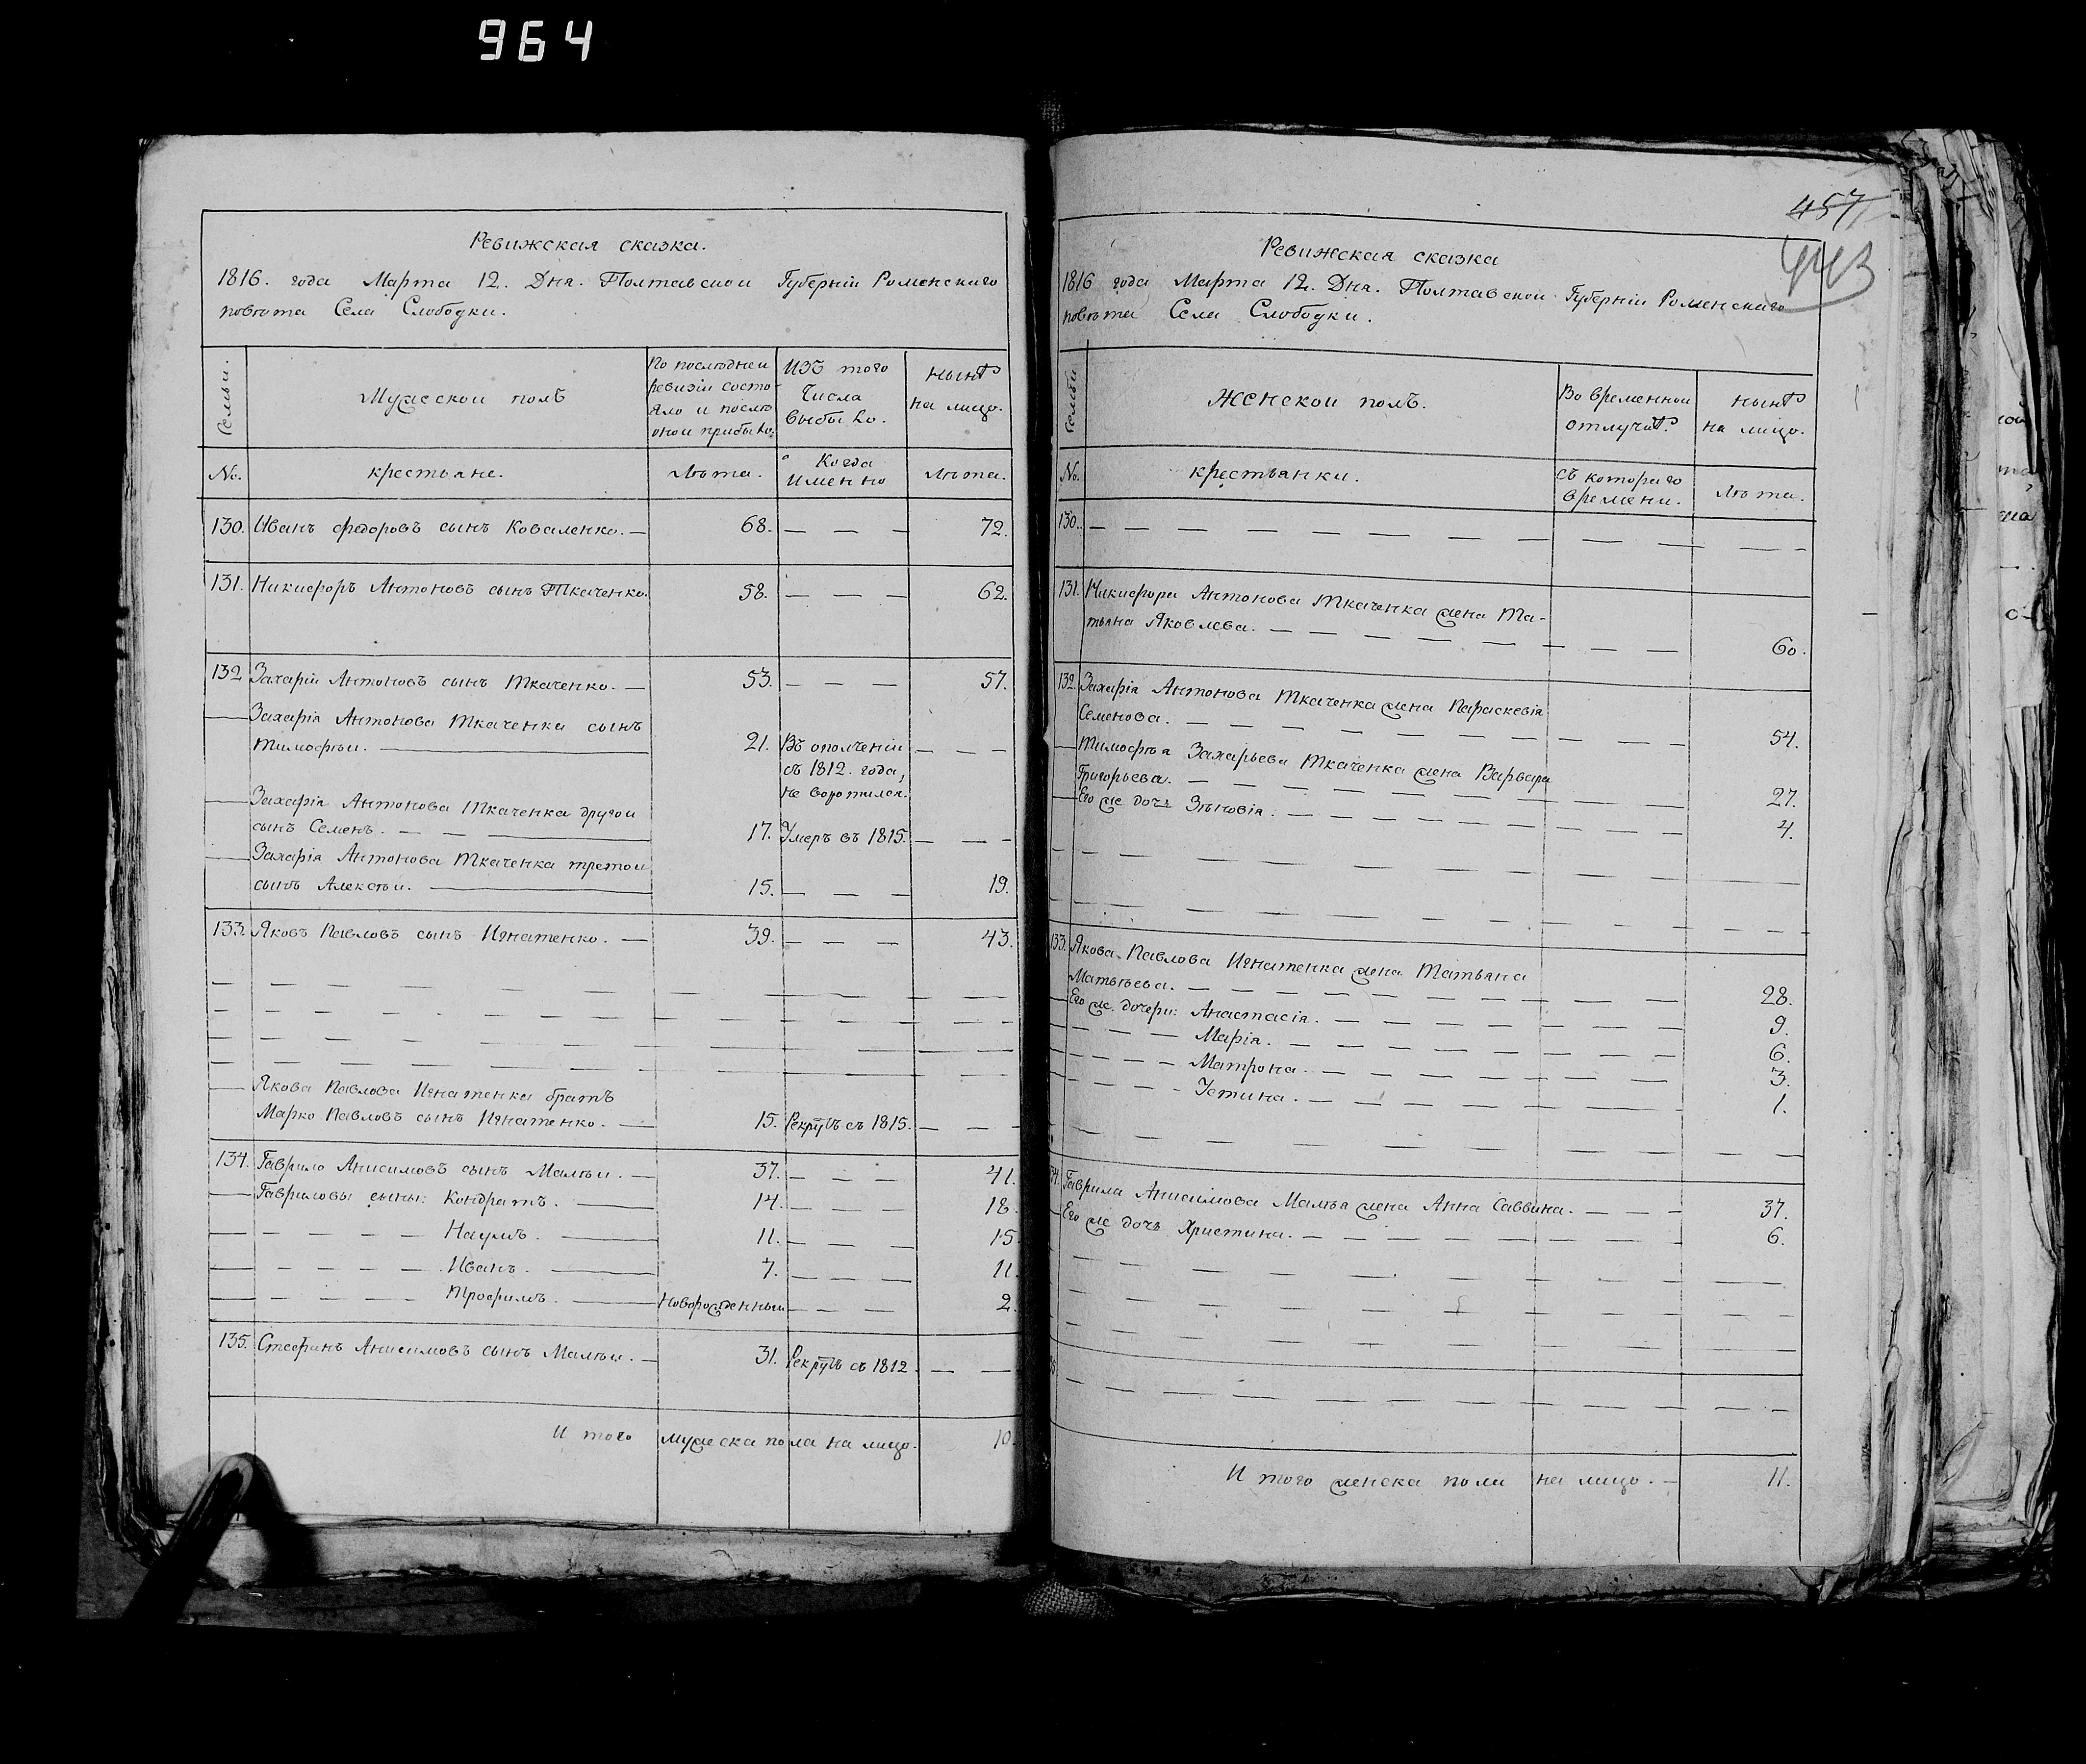 964
Ревижская сказка.
1816. года Марта 12. Дня. Полтавской Губерніи Роменскаго
повѣта Села Слободки.
Семьи.
Мужескои полъ
По послѣднеи
ревизіи состо
яло и послѣ
онои прибыло.
Изъ того
Числа
выбыло.
нынѣ
на лицо.
No.
крестьяне.
Лѣта.
Когда
именно
Лѣта.
130. Иванъ Федоровъ сынъ Коваленко. — 68. — — — 72.
131. Никифоръ Антоновъ сынъ Ткаченко. 58. — — — 62.
132 Захарій Антоновъ сынъ Ткаченко. — 53. — — — 57.
— Захарія Антонова Ткаченка сынъ
Тимофѣи. — 21. Въ ополченіи — — —
съ 1812. года,
не воротился.
— Захарія Антонова Ткаченка другои
сынъ Семенъ. — — — 17. Умеръ въ 1815. — — —
— Захарія Антонова Ткаченка третои
сынъ Алексѣи. — 15. — — — 19.
133. Яковъ Павловъ сынъ Игнатенко. — 39. — — — 43.
— Якова Павлова Игнатенка братъ
Марко Павловъ сынъ Игнатенко. — 15. Рекрутъ съ 1815. — — —
134. Гаврило Анисимовъ сынъ Малѣи. — 37. — — — 41.
— Гавриловы сыны: Кондратъ. — 14. — — — 18.
— — — — — — Наумъ. — 11. — — — 15
— — — — — — Иванъ. — 7. — — — 11.
— — — — — — Трофимъ. — Новорожденныи — — — 2.
135. Стефанъ Анисимовъ сынъ Малѣи. — 31. Рекрутъ съ 1812. — —
И того мужеска пола на лицо. 10.
457
443
Ревижская сказка
1816 года Марта 12. Дня. Полтавскои Губерніи Роменскаго
повѣта Села Слободки.
Семьи
Женскои полъ.
Во временнои
отлучкѣ.
нынѣ
на лицо.
No.
крестьянки.
съ котораго
времени.
Лѣта.
130. — — — — — — — —
131. Никифора Антонова Ткаченка жена Та-
тьяна Яковлева. — — — — — — — — 60.
132. Захарія Антонова Ткаченка жена Параскевія
Семенова. — — — — — — — — 54.
— Тимофѣя Захарьева Ткаченка жена Варвара
Григорьева. — — — — — — — — 27.
— Его же дочь Зѣновія. — — — — — — — 4.
133. Якова Павлова Игнатенка жена Татьяна
Матвѣева. — — — — — — — — 28.
— Его же дочери: Анастасія. — — — — — — 9.
— — — — Марія. — — — — — — — 6.
— — — — — Матрона. — — — — — — 3.
— — — — — Устина. — — — — — — 1.
34. Гаврила Анисимова Малѣя жена Анна Саввина. — — — 37.
— Его же дочь Христина. — — — — — — — 6.
И того женска пола на лицо. — 11.